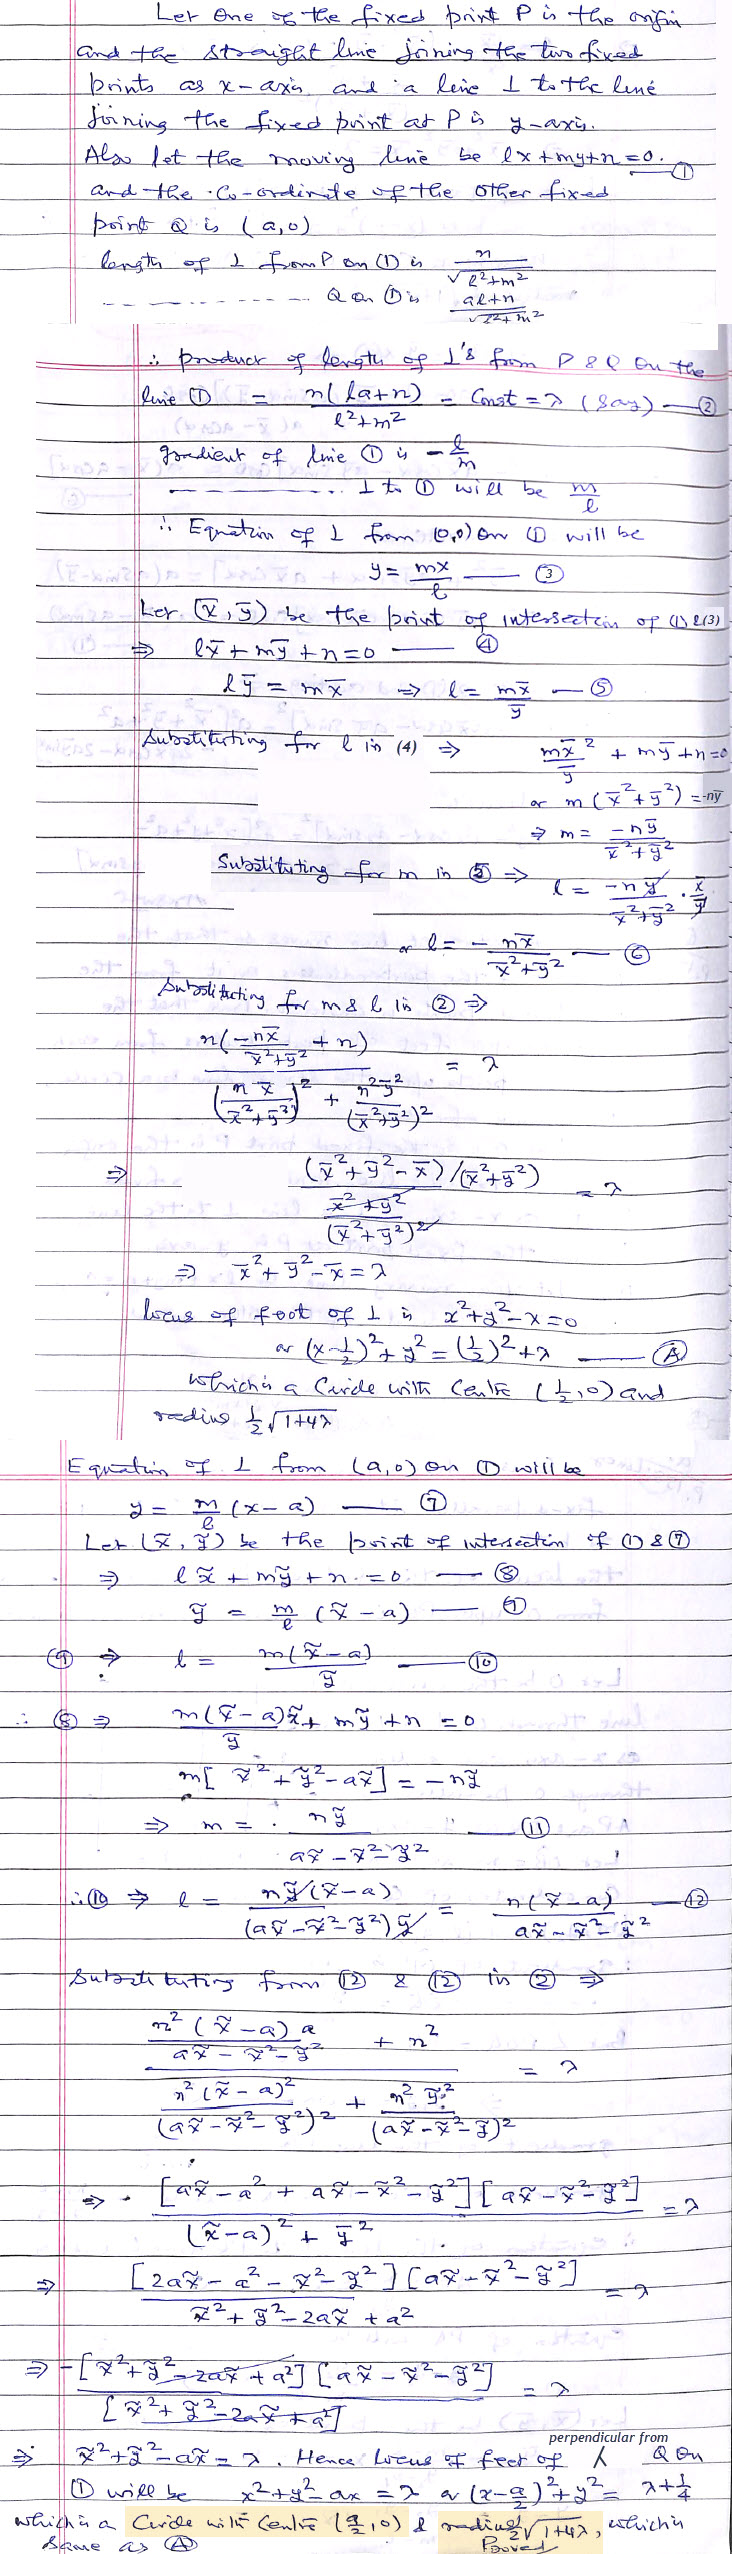 Let One of the fixed point P is the origin
and the straight line joining the two fixed
points as x-axis and a line ⊥ to the line
joining the fixed point at P is y-axis.
Also let the moving line be lx+my+n=0. ①
and the co-ordinate of the other fixed
point Q is (a,0)
length of ⊥ from P on ① is n/√(l²+m²)
------------ Q on ① is (al+n)/√(l²+m²)
∴ product of length of ⊥'s from P & Q on the
line ① = n(la+n)/(l²+m²) = Const = λ (say) — ②
gradient of line ① is -l/m
------------ ⊥ to ① will be m/l
∴ Equation of ⊥ from (0,0) on ① will be
y = mx/l — ③
Let (x̄, ȳ) be the point of intersection of (1) & (3)
⇒ lx̄ + mȳ + n = 0 — ④
lȳ = mx̄ ⇒ l = mx̄/ȳ — ⑤
Substituting for l in (4) ⇒ mx̄²/ȳ + mȳ + n = 0
or m(x̄²+ȳ²) = -nȳ
⇒ m = -nȳ/(x̄²+ȳ²)
Substituting for m in ⑤ ⇒ l = -nȳ/(x̄²+ȳ²) · x̄/ȳ
or l = -nx̄/(x̄²+ȳ²) — ⑥
Substituting for m & l in ② ⇒
n(-nx̄/(x̄²+ȳ²) + n) / ((nx̄/(x̄²+ȳ²))² + n²ȳ²/(x̄²+ȳ²)²) = λ
⇒ (x̄²+ȳ²-x̄)/(x̄²+ȳ²) / ((x̄²+ȳ²)/(x̄²+ȳ²)²) = λ
⇒ x̄²+ȳ²-x̄ = λ
locus of foot of ⊥ is x²+y²-x=0
or (x-1/2)²+y² = (1/2)²+λ — Ⓐ
which is a Circle with Centre (1/2,0) and
radius 1/2√(1+4λ)
Equation of ⊥ from (a,0) on ① will be
y = m/l (x-a) — ⑦
Let (x̃, ỹ) be the point of intersection of ① & ⑦
⇒ lx̃ + mỹ + n = 0 — ⑧
ỹ = m/l (x̃-a) — ⑨
⑨ ⇒ l = m(x̃-a)/ỹ — ⑩
∴ ⑧ ⇒ m(x̃-a)x̃/ỹ + mỹ + n = 0
m[x̃²+ỹ²-ax̃] = -nỹ
⇒ m = nỹ/(ax̃-x̃²-ỹ²) — ⑪
∴ ⑩ ⇒ l = nỹ(x̃-a)/((ax̃-x̃²-ỹ²)ỹ) = n(x̃-a)/(ax̃-x̃²-ỹ²) — ⑫
Substituting from ⑫ & ⑫ in ② ⇒
(n²(x̃-a)a/(ax̃-x̃²-ỹ²) + n²) / (n²(x̃-a)²/(ax̃-x̃²-ỹ²)² + n²ỹ²/(ax̃-x̃²-ỹ)²) = λ
⇒ [ax̃-a²+ax̃-x̃²-ỹ²][ax̃-x̃²-ỹ²] / ((x̃-a)²+ỹ²) = λ
⇒ [2ax̃-a²-x̃²-ỹ²][ax̃-x̃²-ỹ²] / (x̃²+ỹ²-2ax̃+a²) = λ
⇒ -[x̃²+ỹ²-2ax̃+a²][ax̃-x̃²-ỹ²] / [x̃²+ỹ²-2ax̃+a²] = λ
⇒ x̃²+ỹ²-ax̃ = λ. Hence locus of feet of perpendicular from Q on
① will be x²+y²-ax = λ or (x-a/2)²+y² = λ+1/4
which is a Circle with Centre (a/2,0) & radius 1/2√(1+4λ), which is
same as Ⓐ Proved